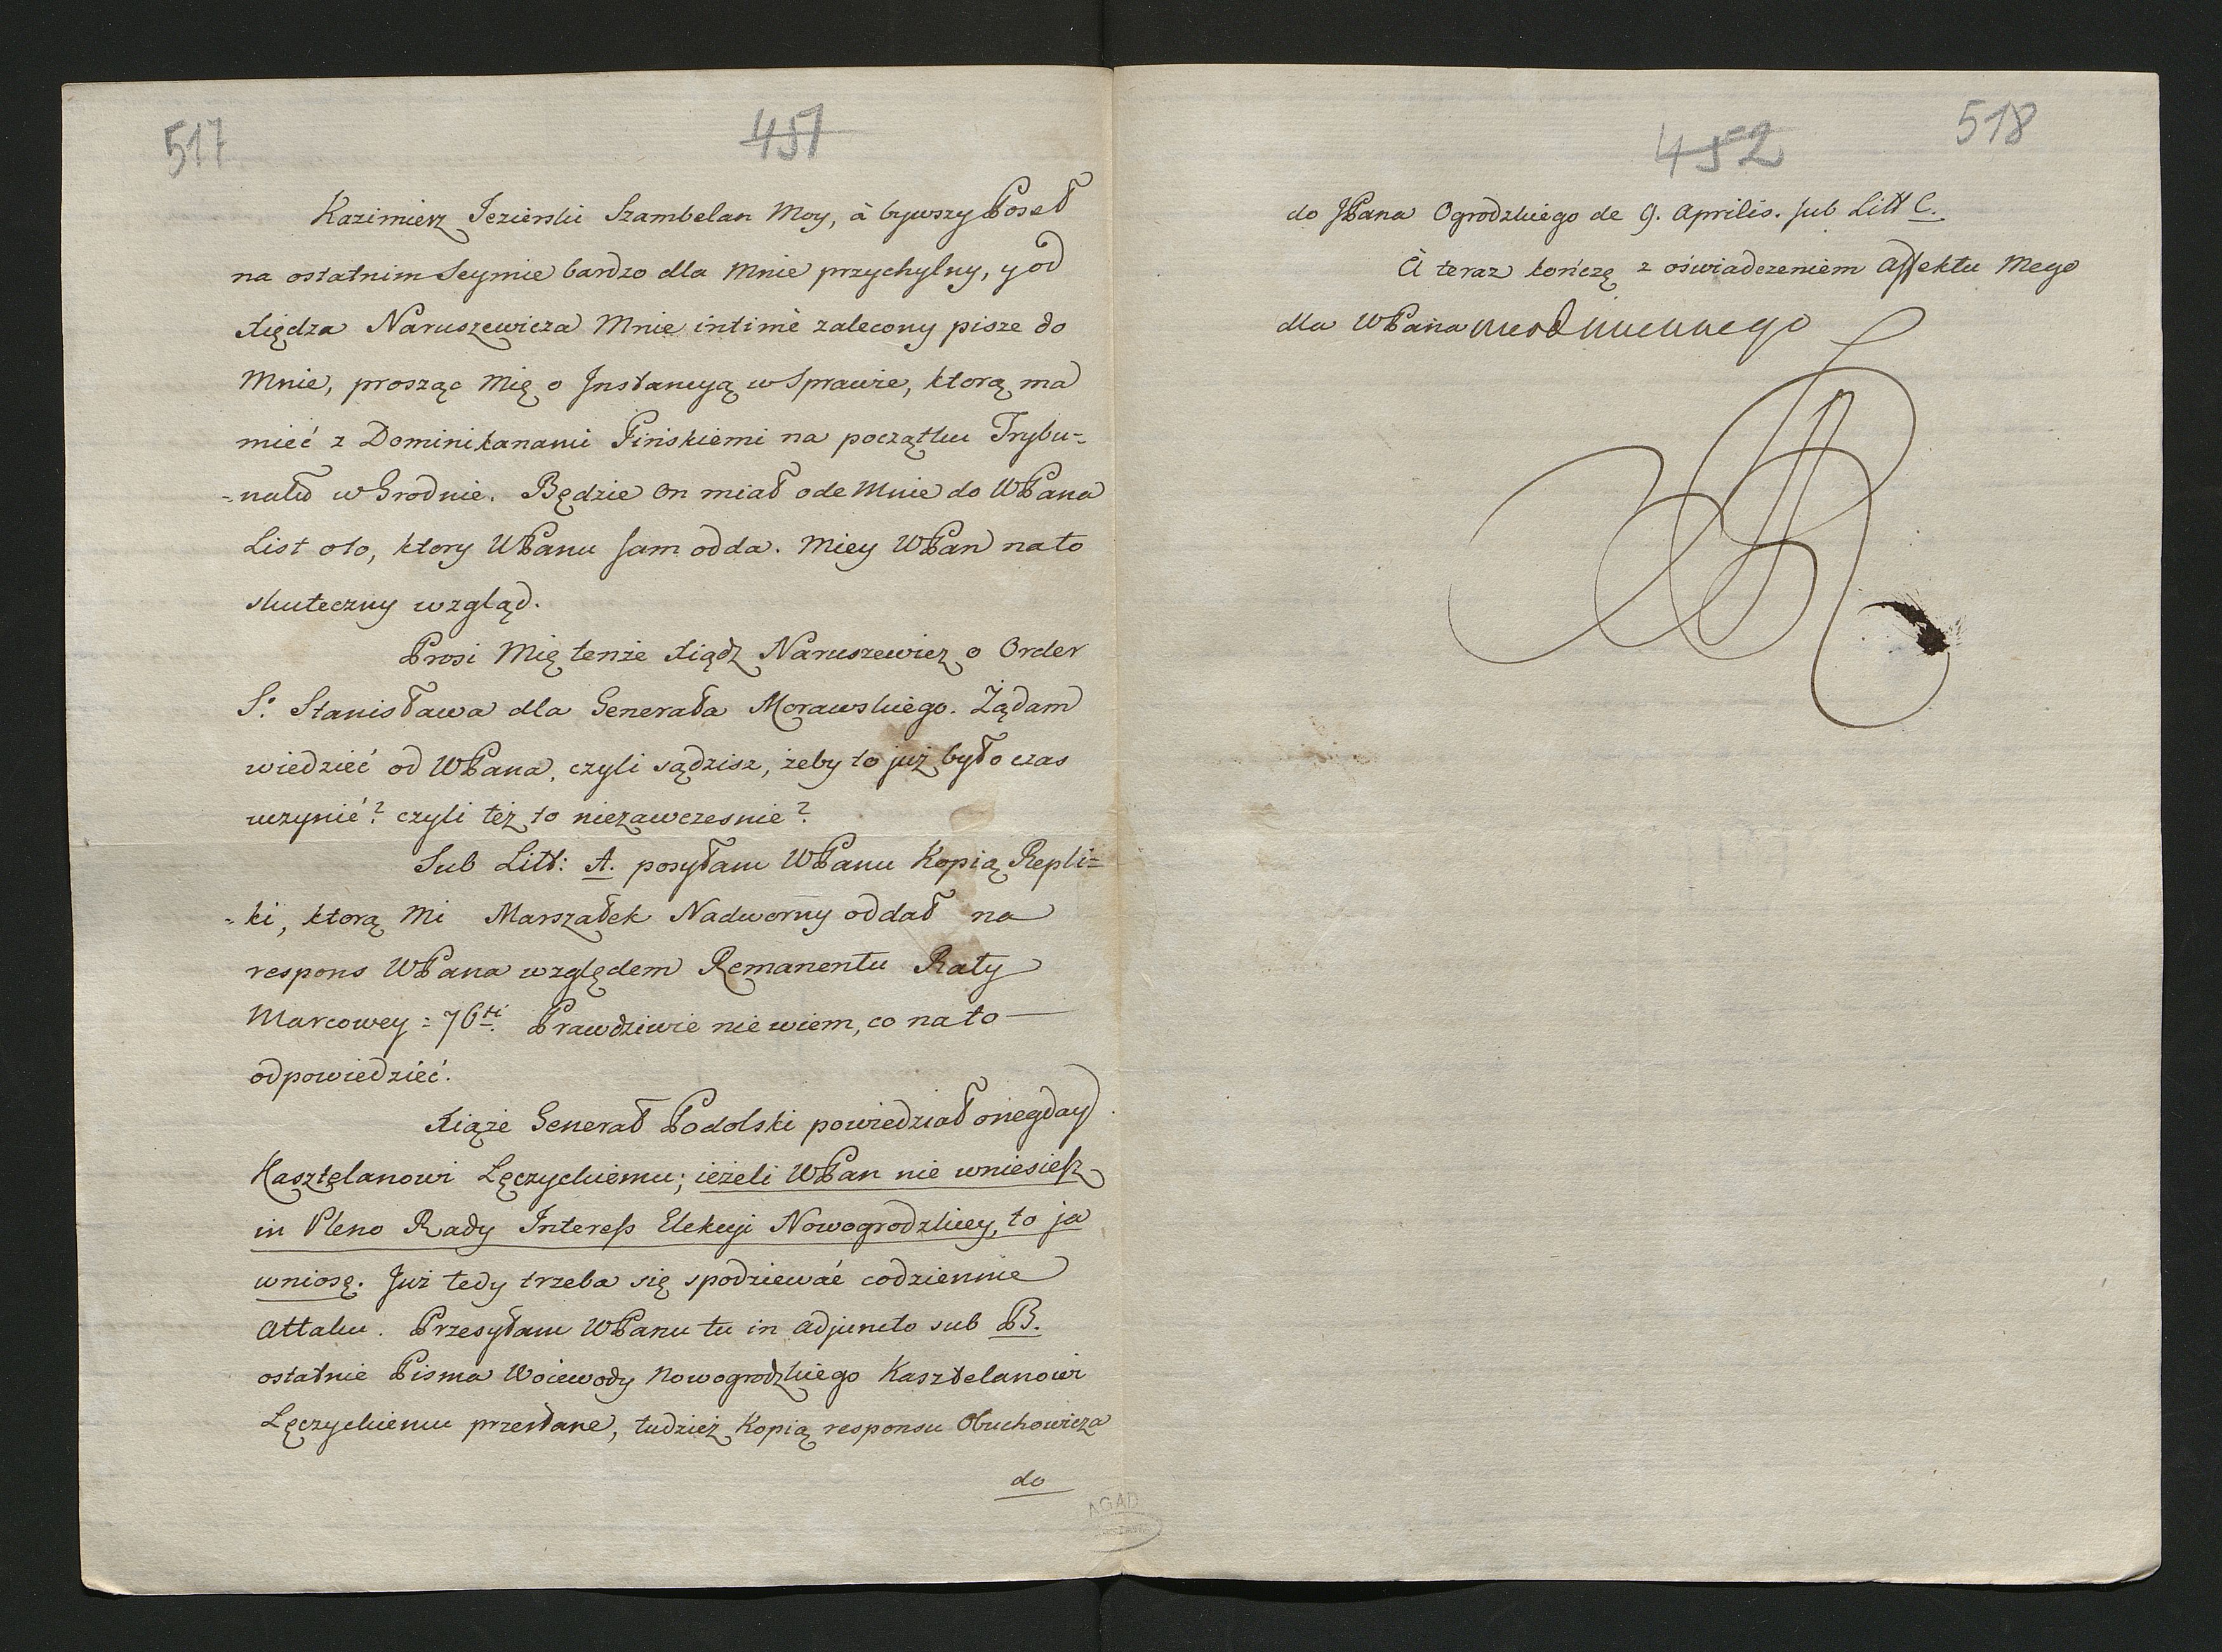 517
451
Kazimierz Jezierski Szambelan Moy, à bywszy Poseł
na ostatnim Seymie bardzo dla Mnie przychylny, y od
Xiędza Naruszewicza Mnie intimè zalecony pisze do
Mnie, prosząc Mię o Jnstancyą w Sprawie, ktorą ma
mieć z Dominikanami Pińskiemi na początku Trybu=
=nału w Grodnie. Będzie On miał ode Mnie do WPana
List oto, ktory WPanu sam odda. Miey WPan na to
skuteczny wzgląd.
Prosi Mię tenże Xiądz Naruszewicz o Order
S. Stanisława dla Generała Morawskiego. Żądam
wiedzieć od WPana, czyli sądzisz, żeby to już było czas
uczynić? czyli też to niezawczesnie?
Sub Litt: A. posyłam WPanu Kopią Repli=
=ki, ktorą Mi Marszałek Nadworny oddał na
respons WPana względem Remanentu Raty
Marcowey = 76ti. Prawdziwie nie wiem, co na to
odpowiedzieć.
Xiąże Generał Podolski powiedział onegday
Kasztelanowi Łęczyckiemu; ieżeli WPan nie wniesiesz
in Pleno Rady Interess Elekcyi Nowogrodzkiey, to ja
wniosę. Już tedy trzeba się spodziewać codziennie
Attaku. Przesyłam WPanu tu in adjuncto sub B.
ostatnie Pisma Woiewody Nowogrodzkiego Kasztelanowi
Łęczyckiemu przesłane, tudzież Kopią responsu Obuchowicza
do
AGAD
518
452
do JPana Ogrodzkiego de 9. Aprilis. sub Litt C.
À teraz kończę z oświadczeniem Affektu Mego
dla WPana nieodmiennego